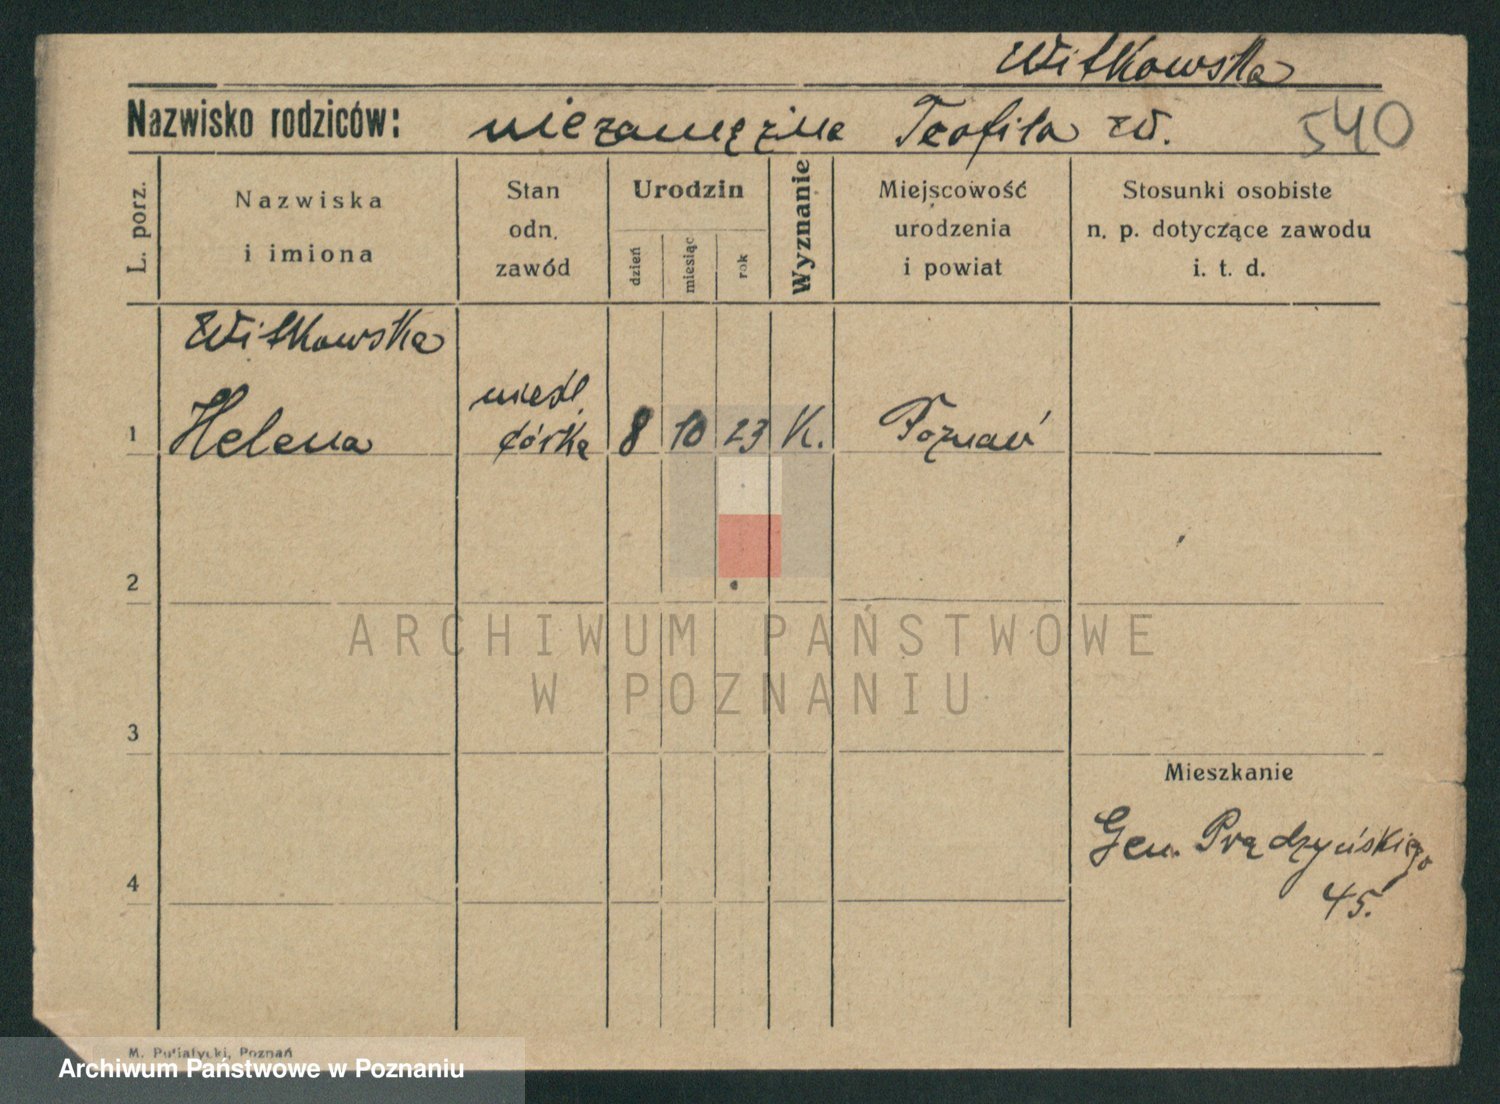 Witkowska
Nazwisko rodziców: niezamężna Teofila W. 540
L. porz.
Nazwiska
i imiona
Stan
odn.
zawód
Urodzin
dzień
miesiąc
rok
Wyznanie
Miejscowość
urodzenia
i powiat
Stosunki osobiste
n. p. dotyczące zawodu
i. t. d.
Witkowska
1 Helena
nieśl.
córka
8 10 23 K. Poznań
2
ARCHIWUM PAŃSTWOWE
W POZNANIU
3
Mieszkanie
Gen. Prądzyńskiego
45.
4
M. Putiatycki, Poznań
Archiwum Państwowe w Poznaniu